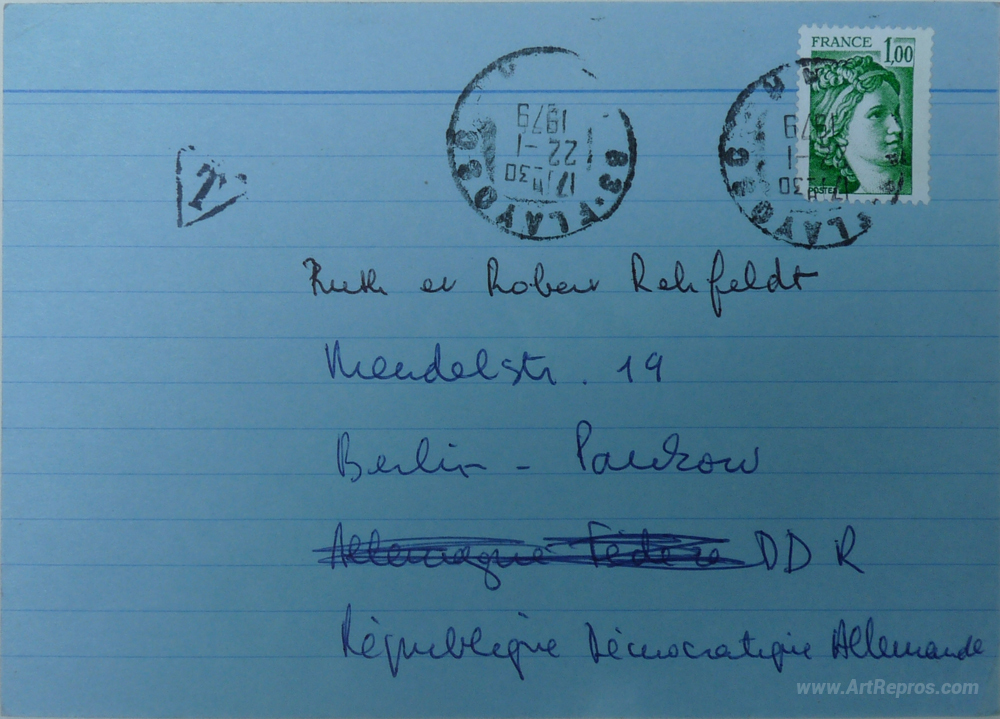 FRANCE 1,00
POSTES
83 - FLAYOSC
17 H 30
22 - 1
1979
T
Ruth et Robert Rehfeldt
Mendelstr. 19
Berlin - Pankow
Allemagne Fédéra DDR
République Démocratique Allemande
www.ArtRepros.com